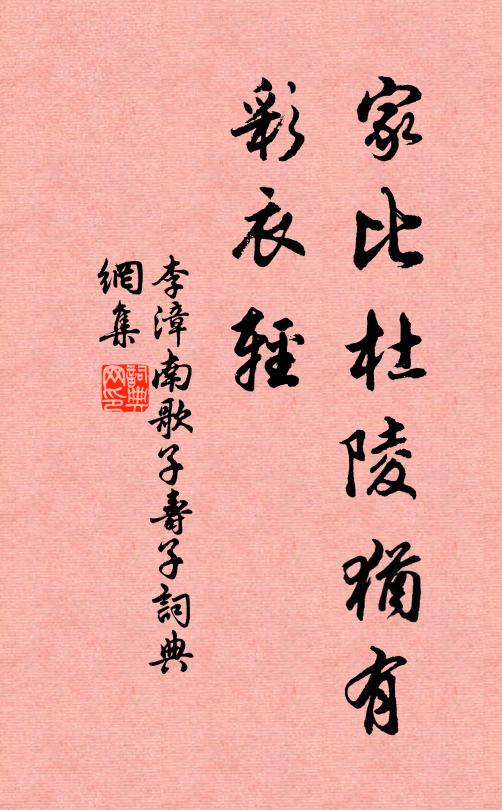 家比杜陵猶有
彩衣輕
李漳南歌子壽子詞典
網集
詞典
网印